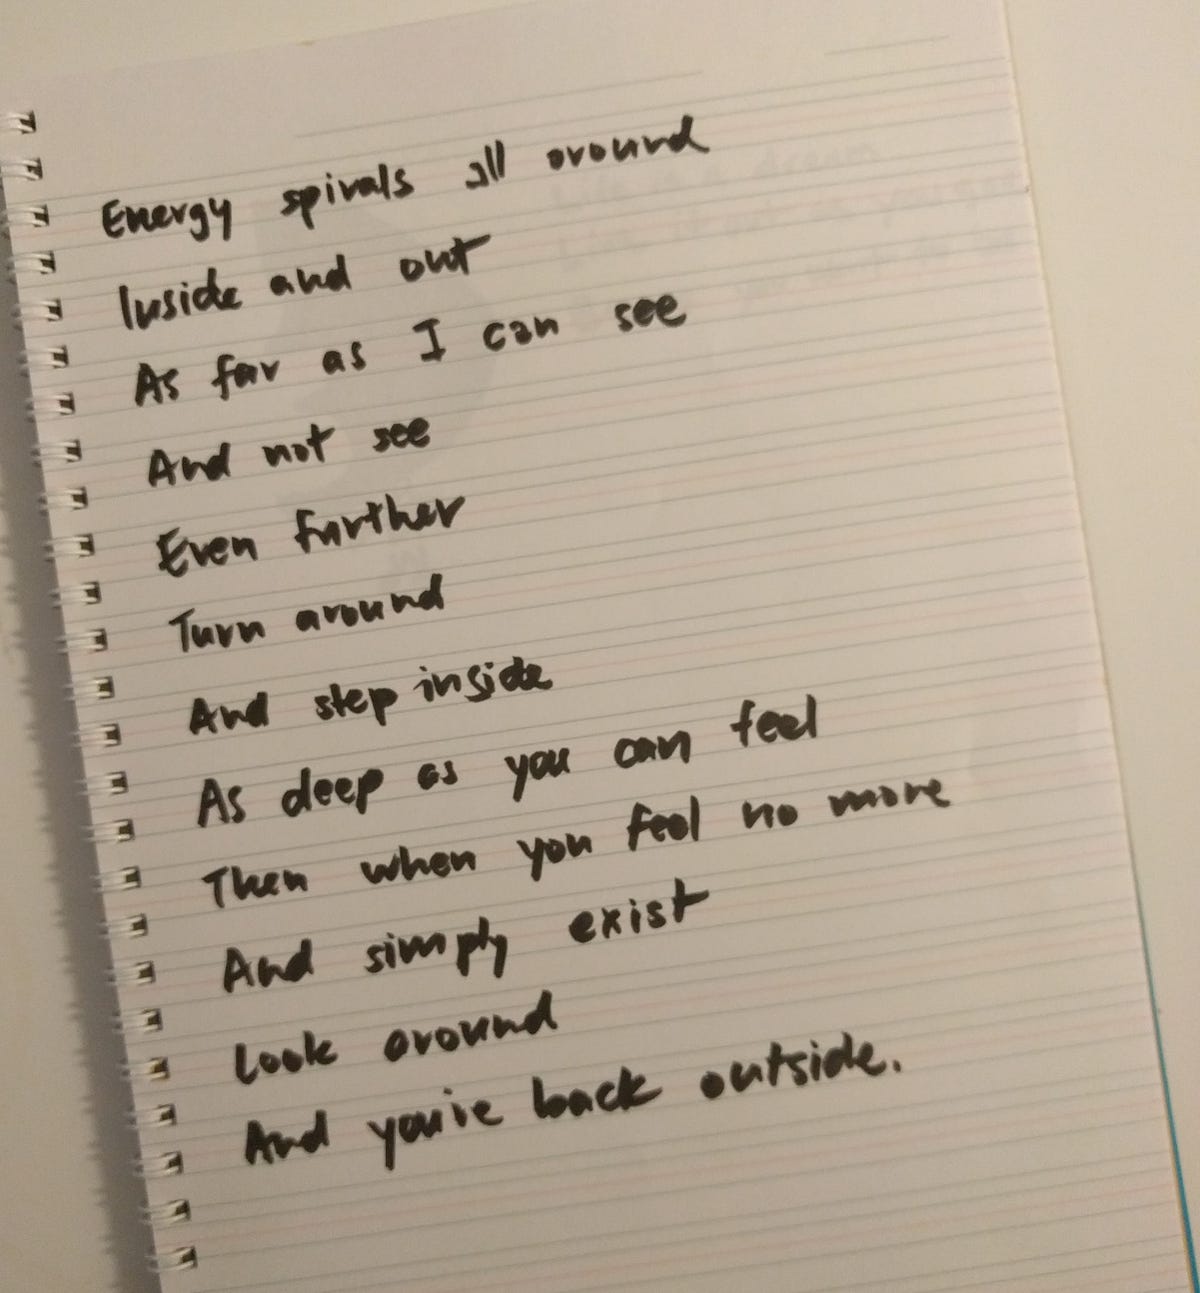 Energy spirals all around
Inside and out
As far as I can see
And not see
Even further
Turn around
And step inside
As deep as you can feel
Then when you feel no more
And simply exist
Look around
And you're back outside.